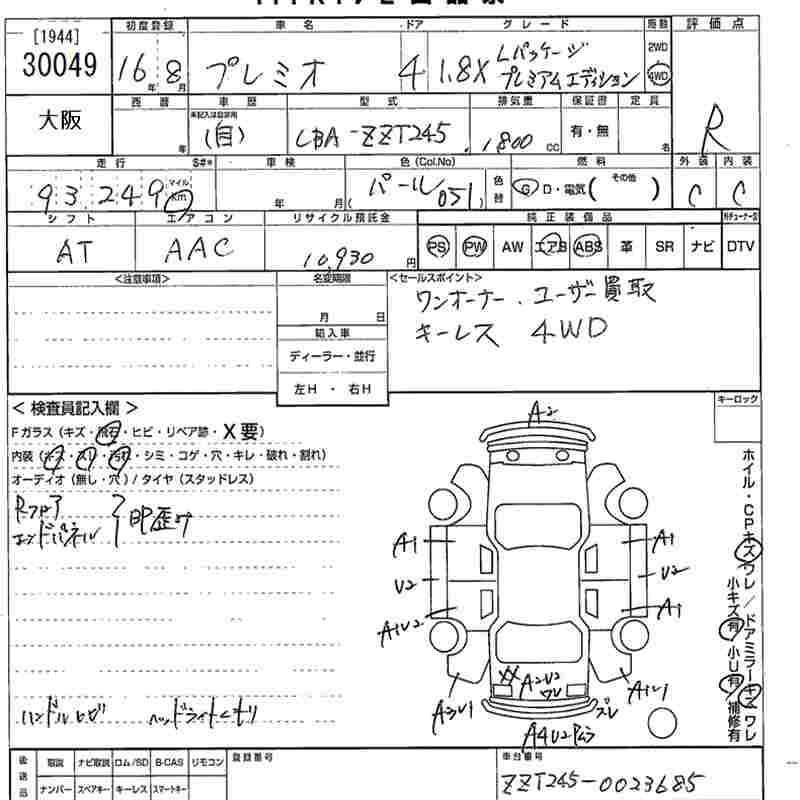 [1944]
30049
初度登録 車名 ドア グレード 駆動 評価点
16年 8月 プレミオ 4 1.8X Lパッケージ プレミアムエディション 2WD 4WD R
大阪
西暦 車歴 型式 排気量 保証書 定員
年 未記入は自家用 (自) CBA-ZZT245 1,800 CC 有・無 名
走行 S#* 車検 色(Col.No) 燃料 外装 内装
93,249 マイル Km 年 月 パール(051) 色替 G D・電気( その他 ) C C
シフト エアコン リサイクル預託金 純正装備品
AT AAC 10,930円 PS PW AW エアB ABS 革 SR ナビ DTV
<注意事項> 名変期限 <セールスポイント>
月 日
ワンオーナー、ユーザー買取
キーレス 4WD
輸入車
ディーラー・並行
左H ・ 右H
<検査員記入欄> キーロック
Fガラス(キズ・飛石・ヒビ・リペア跡・X要)
内装(キズ・スレ・汚れ・シミ・コゲ・穴・キレ・破れ・割れ)
オーディオ(無し・穴)/タイヤ(スタッドレス)
Rフロア
エンドパネル
凹歪み
ハンドルヒビ ヘッドライトくもり
A2
A1 A1
U2 U2
A1U2 A1
XX A2U2 ワレ
A3U1 スレ A1U1
A4U2
ホイル・CPキズワレ/ドアミラーキズワレ
小キズ有 小U有 補修有
後送品 取説 ナビ取説 ロム/SD B-CAS リモコン 登録番号 車台番号
ナンバー スペアキー キーレス スマートキー ZZT245-0023685